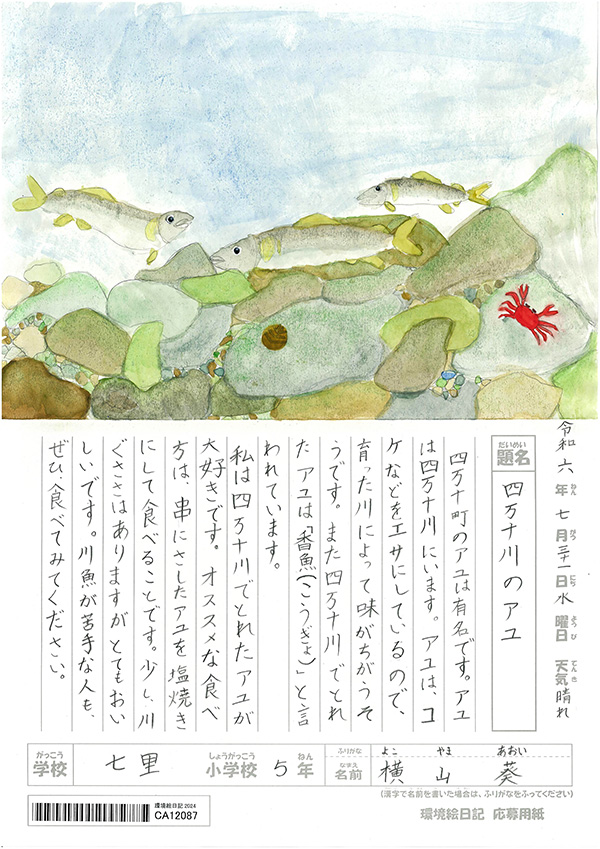 令和六年七月三十一日水曜日 天気晴れ
ねん がつ にち ようび てんき
だいめい
題名 四万十川のアユ
四万十町のアユは有名です。アユ
は四万十川にいます。アユは、コ
ケなどをエサにしているので、
育った川によって味がちがうそ
うです。また四万十川でとれ
たアユは「香魚(こうぎょ)」と言
われています。
私は四万十川でとれたアユが
大好きです。オススメな食べ
方は、串にさしたアユを塩焼き
にして食べることです。少し、川
ぐささはありますがとてもおい
しいです。川魚が苦手な人も、
ぜひ、食べてみてください。
がっこう しょうがっこう ねん ふりがな よこ やま あおい
学校 七里 小学校 5年 なまえ 名前 横山 葵
(漢字で名前を書いた場合は、ふりがなをふってください)
環境絵日記 応募用紙
環境絵日記 2024
CA12087